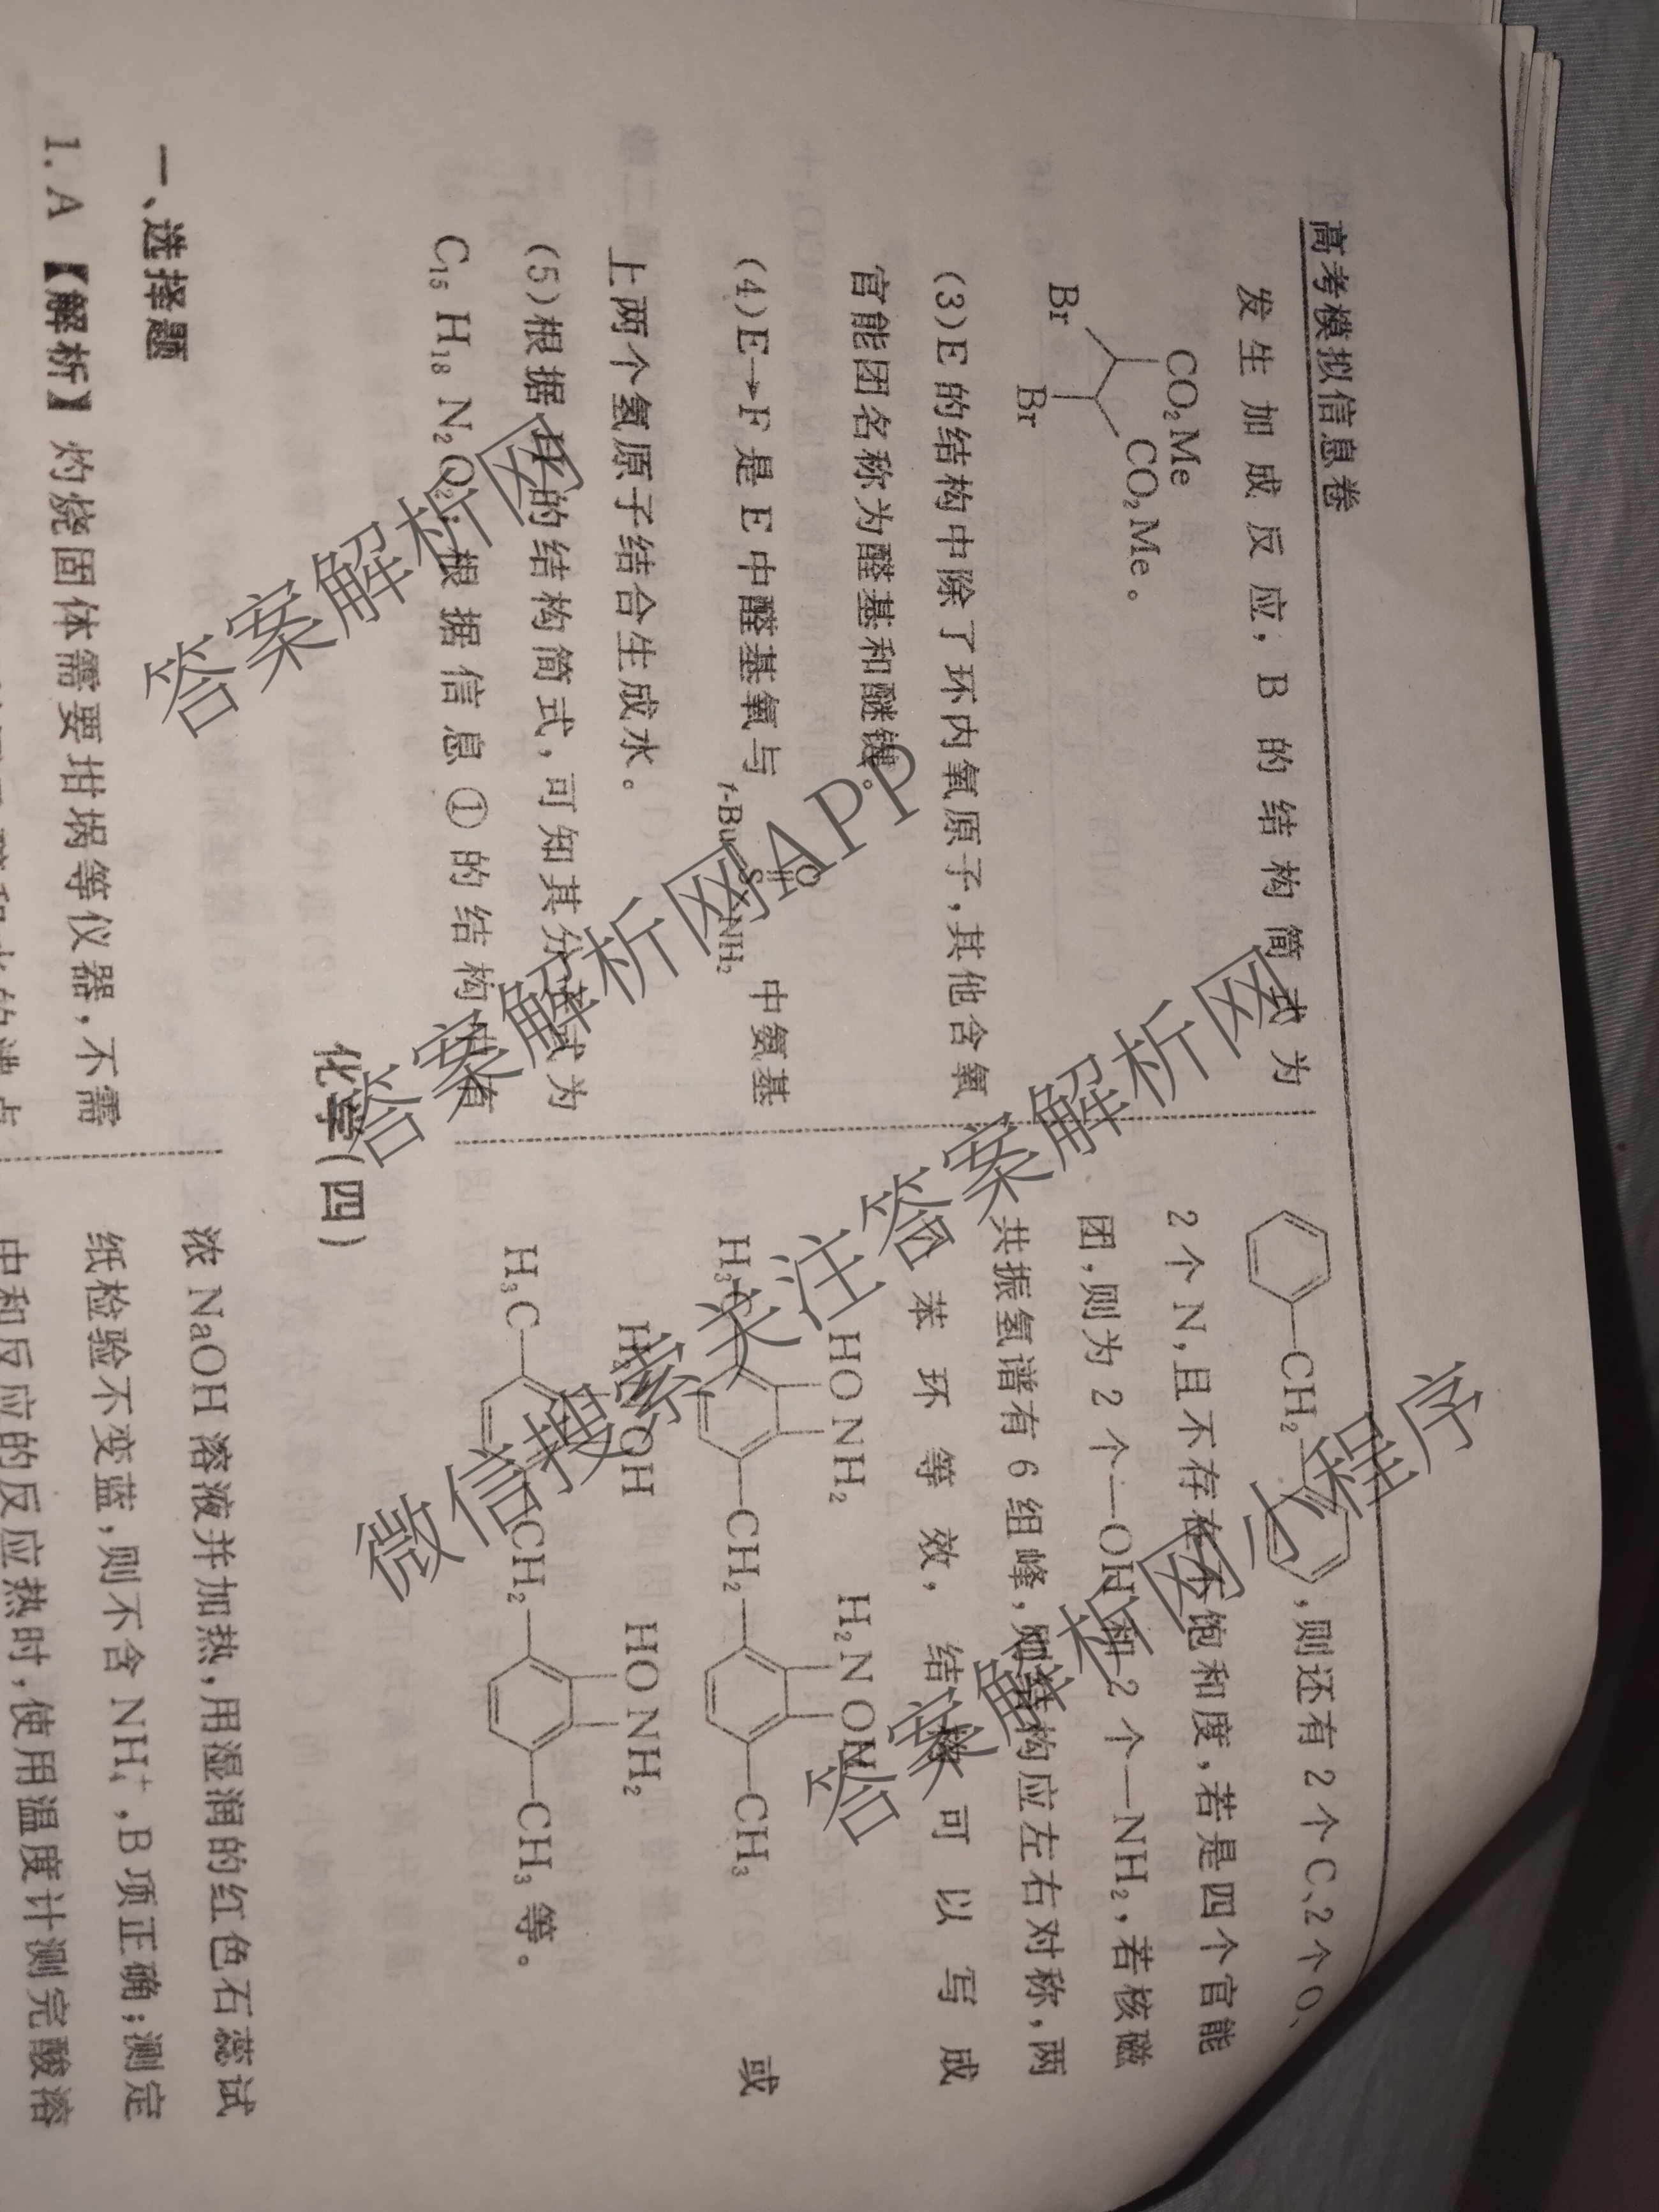 高考模拟信息卷
发生加成反应，B 的结构简式为
CO₂Me
CO₂Me。
Br
Br
(3)E 的结构中除了环内氧原子，其他含氧
官能团名称为醛基和醚键。
(4)E→F 是 E 中醛基氧与
O
t-Bu S NH₂
中氨基
上两个氢原子结合生成水。
(5)根据 H 的结构简式，可知其分子式为
C₁₅H₁₈N₂O₂；根据信息①的结构中有
—CH₂—，则还有 2 个 C、2 个 O、
2 个 N，且不存在不饱和度，若是四个官能
团，则为 2 个—OH 和 2 个—NH₂，若核磁
共振氢谱有 6 组峰，则结构应左右对称，两
个苯环等效，结构可以写成
HO NH₂ H₂N OH
H₃C— —CH₂— —CH₃ 或
H₂N OH HO NH₂
H₃C— —CH₂— —CH₃ 等。
化学(四)
一、选择题
1. A 【解析】灼烧固体需要坩埚等仪器，不需
浓 NaOH 溶液并加热，用湿润的红色石蕊试
纸检验不变蓝，则不含 NH₄⁺，B 项正确；测定
中和反应的反应热时，使用温度计测完酸溶
答案解析网
答案解析网APP
微信搜索关注答案解析网
答案解析网小程序